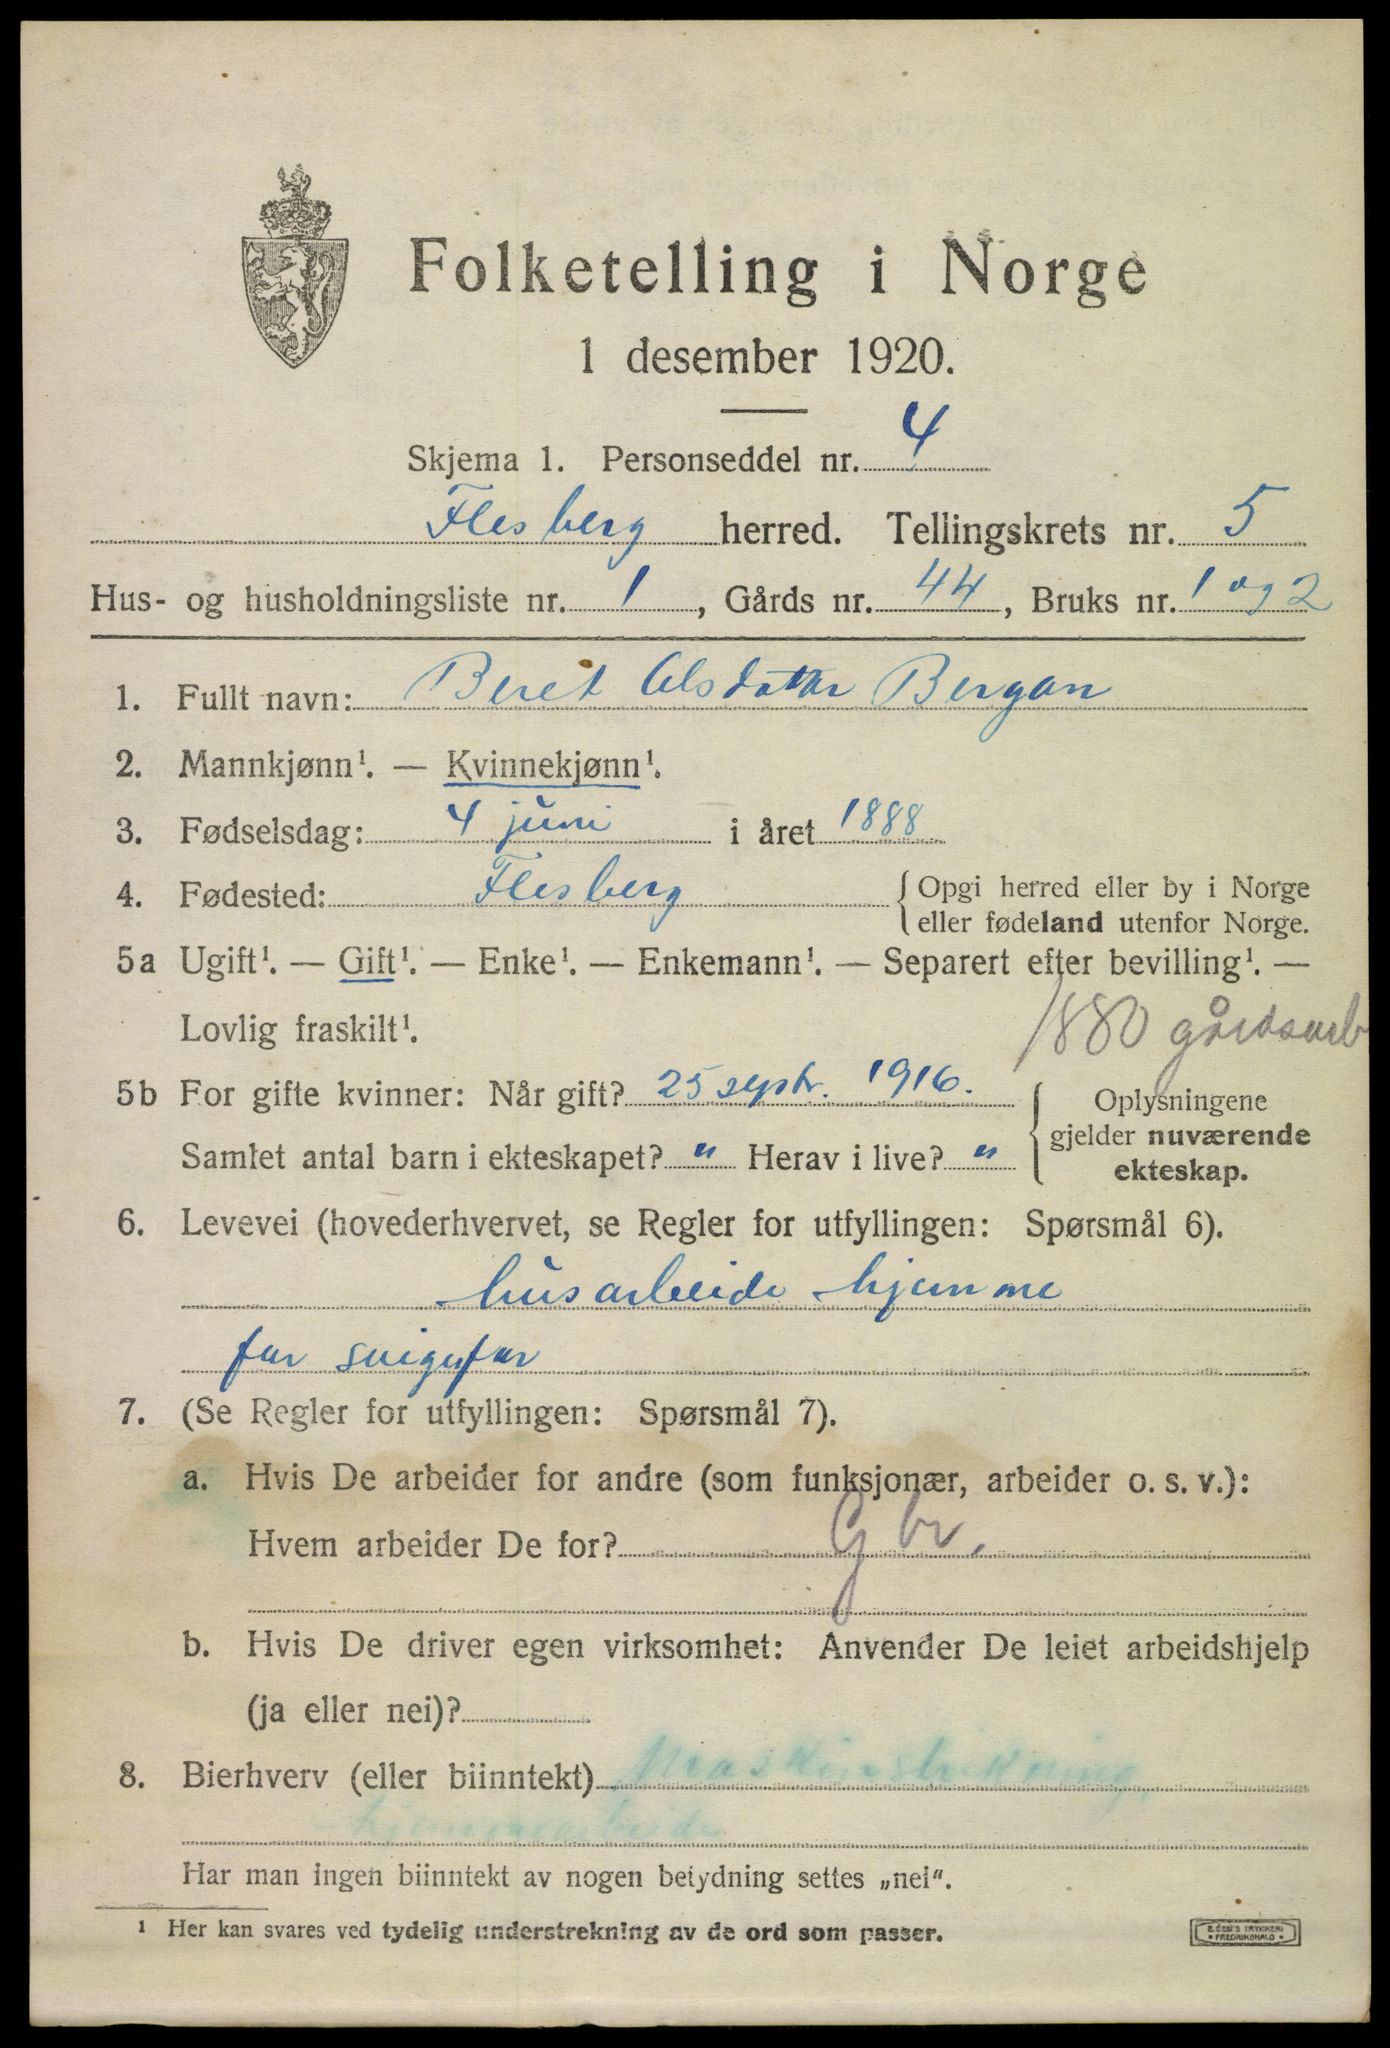 Folketelling i Norge
1 desember 1920.
Skjema 1. Personseddel nr. 4
Flesberg herred. Tellingskrets nr. 5
Hus- og husholdningsliste nr. 1, Gårds nr. 44, Bruks nr. 1 og 2
1. Fullt navn: Beret Olsdatter Bergan
2. Mannkjønn¹. — Kvinnekjønn¹.
3. Fødselsdag: 4 juni i året 1888
4. Fødested: Flesberg { Opgi herred eller by i Norge
eller fødeland utenfor Norge.
5a Ugift¹. — Gift¹. — Enke¹. — Enkemann¹. — Separert efter bevilling¹. —
Lovlig fraskilt¹. 1880 gårdsarb
5b For gifte kvinner: Når gift? 25 septr. 1916. { Oplysningene
gjelder nuværende
ekteskap.
Samlet antal barn i ekteskapet? " Herav i live? "
6. Levevei (hovederhvervet, se Regler for utfyllingen: Spørsmål 6).
husarbeide hjemme
for svigerfar
7. (Se Regler for utfyllingen: Spørsmål 7).
a. Hvis De arbeider for andre (som funksjonær, arbeider o. s. v.):
Hvem arbeider De for? Gbr.
b. Hvis De driver egen virksomhet: Anvender De leiet arbeidshjelp
(ja eller nei)?
8. Bierhverv (eller biinntekt) Maskinstrikning,
hjemmearbeide
Har man ingen biinntekt av nogen betydning settes „nei“.
¹ Her kan svares ved tydelig understrekning av de ord som passer.
E. SEM'S TRYKKERI
• FREDRIKSHALD •